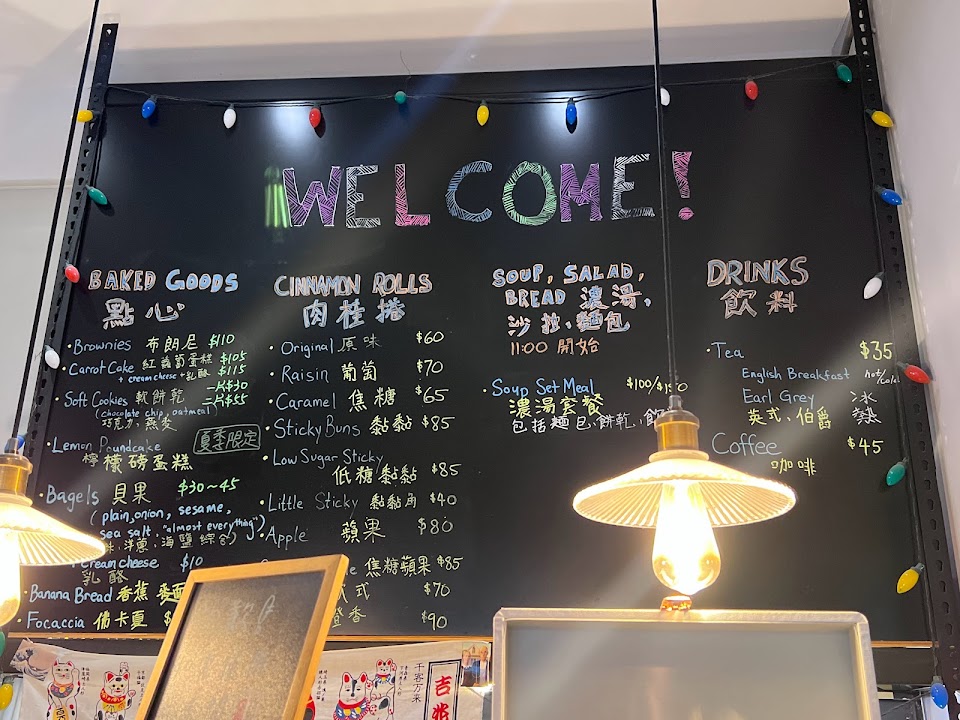 WELCOME!
BAKED GOODS
點心
·Brownies 布朗尼 $110
·Carrot Cake 紅蘿蔔蛋糕 $105
+ cream cheese +乳酪 $115
·Soft Cookies 軟餅乾 一片$30
(chocolate chip, oatmeal) 二片$55
巧克力、燕麥
·Lemon Poundcake 夏季限定
檸檬磅蛋糕
·Bagels 貝果 $30~45
(plain, onion, sesame,
sea salt, "almost everything")
洋蔥, 海鹽 綜合)
cream cheese $10
乳酪
·Banana Bread 香蕉
·Focaccia 佛卡夏
CINNAMON ROLLS
肉桂捲
·Original 原味 $60
·Raisin 葡萄 $70
·Caramel 焦糖 $65
·Sticky Buns 黏黏 $85
·Low Sugar Sticky
低糖黏黏 $85
·Little Sticky 黏黏角 $40
·Apple 蘋果 $80
焦糖蘋果 $85
式 $70
橙香 $90
SOUP, SALAD,
BREAD 濃湯,
沙拉, 麵包
11:00 開始
·Soup Set Meal $100/
濃湯套餐
包括麵包, 餅乾, 飲
DRINKS
飲料
·Tea $35
English Breakfast hot/cold
Earl Grey 冰
英式, 伯爵 熱
Coffee $45
咖啡
千客万来
吉兆